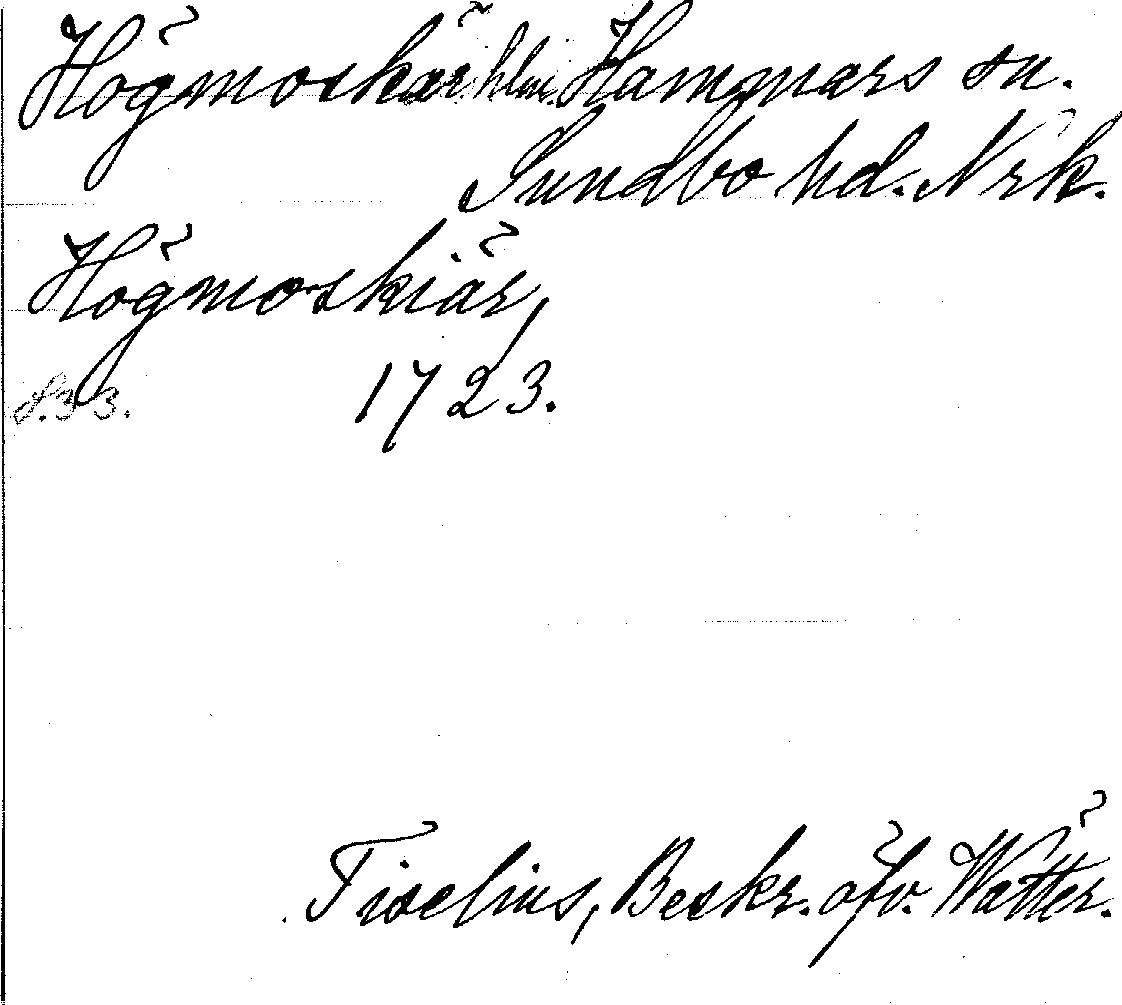 Högmoskär hlm. Hammars sn.
Sundbo hd. Nrk.
Högmoskiär,
S. 33. 1723.
Tiselius, Beskr. öfv. Wätter.